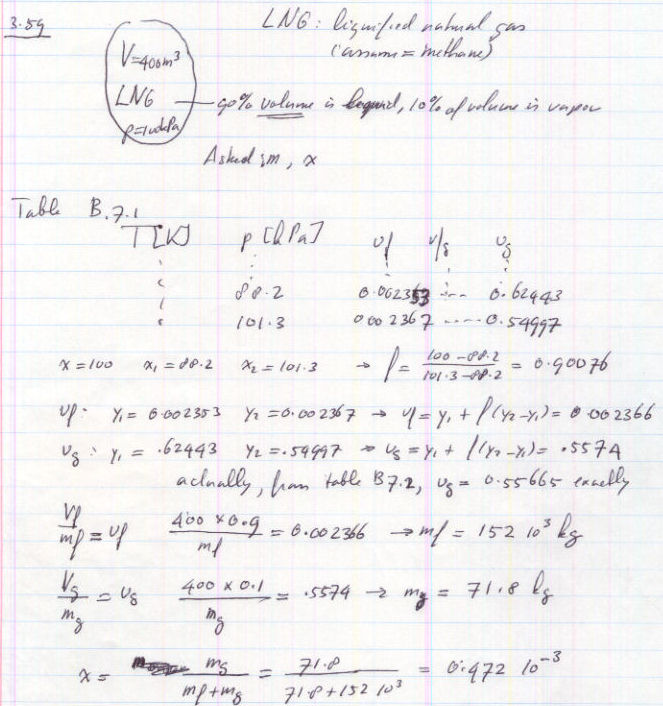 3.59
LNG: liquified natural gas
(assum = methane)
V=400m³
LNG
p=100kPa
90% volume is liquid, 10% of volume is vapor
Asked: m, x
Table B.7.1
T[K] p [kPa] vf vfg vg
88.2 0.002353 ---- 0.62443
101.3 0.002367 ----- 0.54997
x=100 x₁=88.2 x₂=101.3 → f = (100-88.2)/(101.3-88.2) = 0.90076
vf: y₁ = 0.002353 y₂=0.002367 → vf = y₁ + f(y₂-y₁) = 0.002366
vg: y₁ = .62443 y₂=.54997 → vg = y₁ + f(y₂-y₁) = .5574
actually, from table B7.2, vg = 0.55665 exactly
Vf/mf = vf (400 x 0.9)/mf = 0.002366 → mf = 152 10³ kg
Vg/mg = vg (400 x 0.1)/mg = .5574 → mg = 71.8 kg
x = mg/(mf+mg) = 71.8/(71.8+152 10³) = 0.472 10⁻³